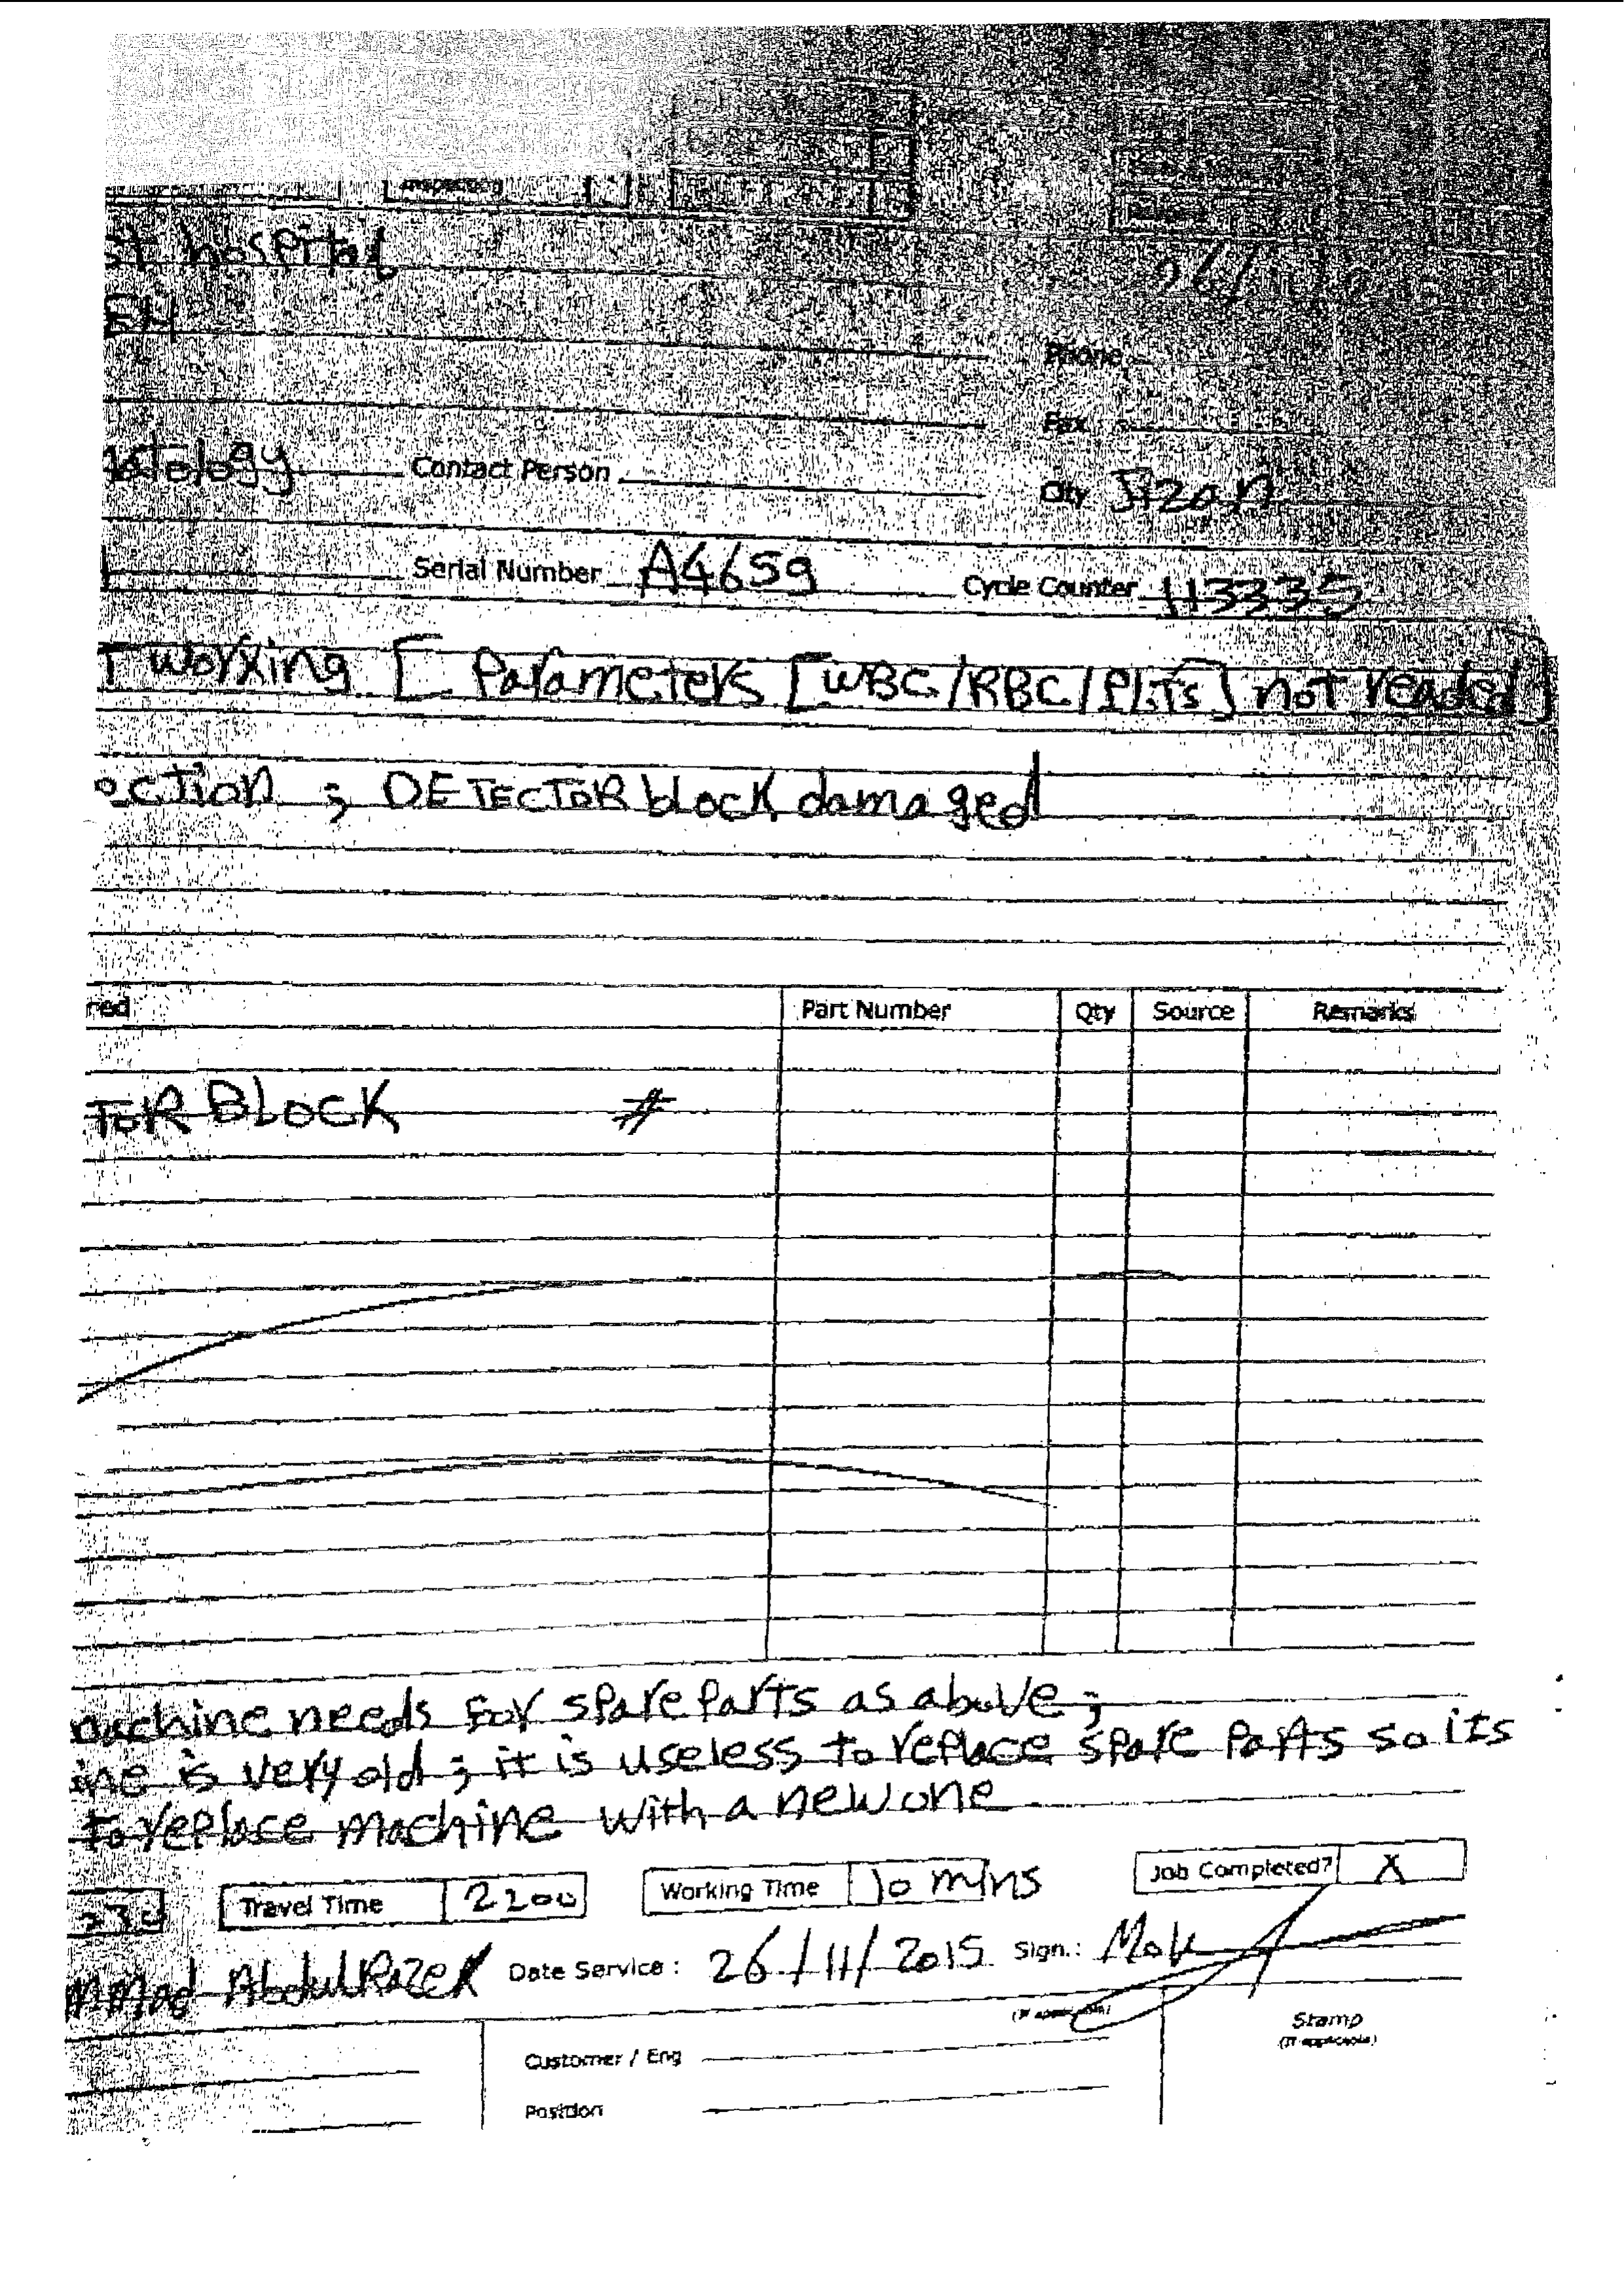 Inspection
st hospital
Phone
Fax
atology Contact Person City Jizan
Serial Number A4659 Cycle Counter 113335
T working [ Parameters [WBC/RBC/PLTs] not readed]
ection ; DETECTOR block damaged
red Part Number Qty Source Remarks
TOR BLOCK #
machine needs for spare parts as above ;
ine is very old ; it is useless to replace spare parts so its
to replace machine with a new one
Travel Time 2200 Working Time 10 mins Job Completed? X
mmad AbdulRazek Date Service : 26/11/2015 Sign.:
(If applicable) Stamp
(If applicable)
Customer / Eng
Position